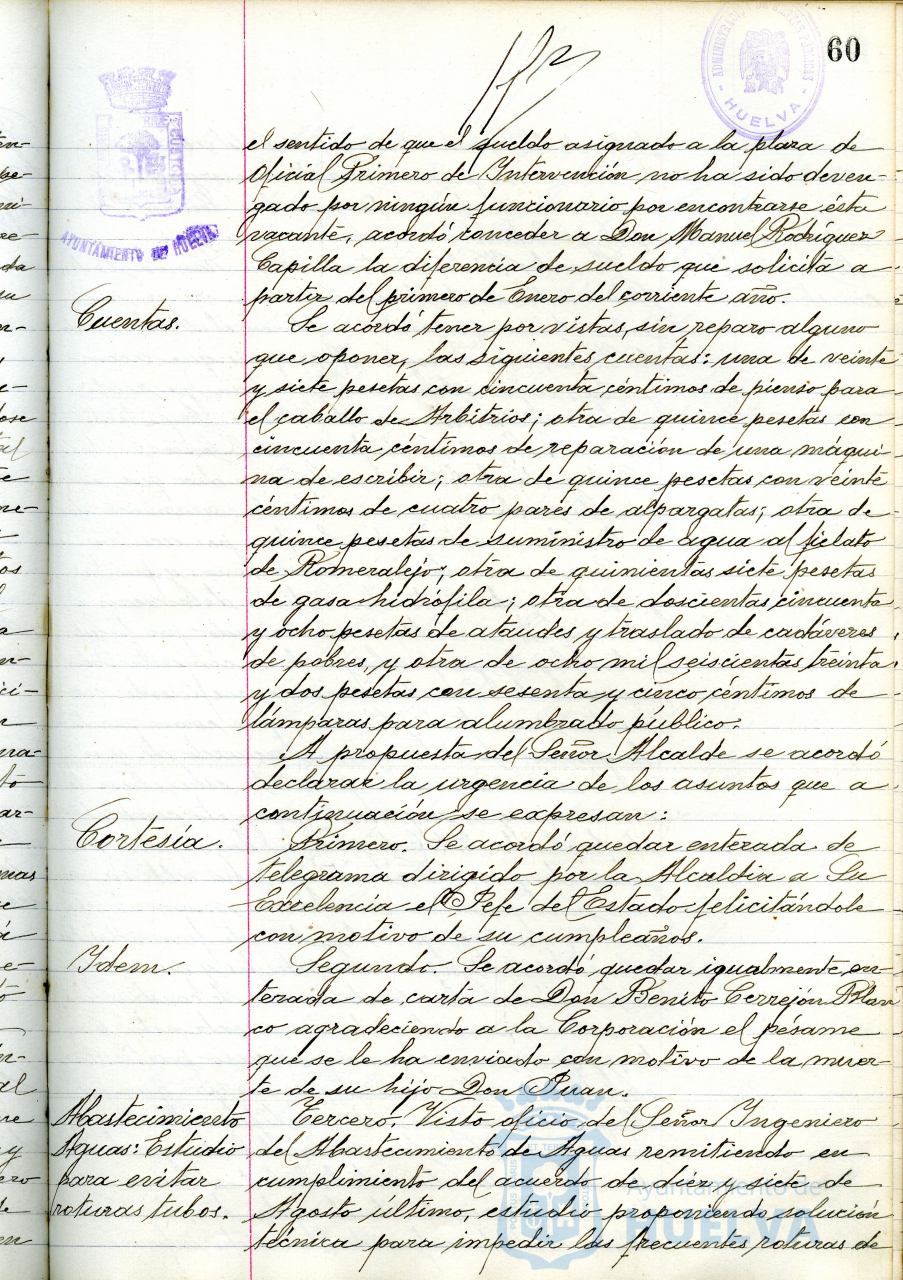 60
ADMINISTRACION
HUELVA
AYUNTAMIENTO DE HUELVA
el sentido de que el sueldo asignado a la plaza de
Oficial Primero de Intervención no ha sido deven-
gado por ningún funcionario por encontrarse ésta
vacante, acordó conceder a Don Manuel Rodríguez
Capilla la diferencia de sueldo que solicita a
partir del primero de Enero del corriente año.
Cuentas.
Se acordó tener por vistas, sin reparo alguno
que oponer, las siguientes cuentas: una de veinte
y siete pesetas con cincuenta céntimos de pienso para
el caballo de Arbitrios; otra de quince pesetas con
cincuenta céntimos de reparación de una máqui-
na de escribir; otra de quince pesetas con veinte
céntimos de cuatro pares de alpargatas; otra de
quince pesetas de suministro de agua al fielato
de Romeralejo; otra de quinientas siete pesetas
de gasa hidrófila; otra de doscientas cincuenta
y ocho pesetas de ataudes y traslado de cadáveres
de pobres, y otra de ocho mil seiscientas treinta
y dos pesetas con sesenta y cinco céntimos de
lámparas para alumbrado público.
A propuesta del Señor Alcalde se acordó
declarar la urgencia de los asuntos que a
continuación se expresan:
Cortesía.
Primero. Se acordó quedar enterada de
telegrama dirigido por la Alcaldia a Su
Excelencia el Jefe del Estado felicitándole
con motivo de su cumpleaños.
Idem.
Segundo. Se acordó quedar igualmente en-
terada de carta de Don Benito Cerrejón Blan
co agradeciendo a la Corporación el pésame
que se le ha enviado con motivo de la muer-
te de su hijo Don Juan.
Abastecimiento
Aguas: Estudio
para evitar
roturas tubos.
Tercero. Visto oficio del Señor Ingeniero
del Abastecimiento de Aguas remitiendo en
cumplimiento del acuerdo de diez y siete de
Agosto último, estudio proponiendo solución
técnica para impedir las frecuentes roturas de
Ayuntamiento de
HUELVA